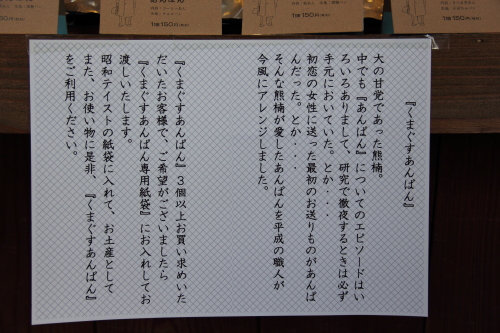 『くまぐすあんぱん』
大の甘党であった熊楠。
中でも『あんぱん』についてのエピソードはい
ろいろありまして、研究で徹夜するときは必ず
手元においていた。とか・・・
初恋の女性に送った最初のお送りものがあんぱ
んだった。とか・・・
そんな熊楠が愛したあんぱんを平成の職人が
今風にアレンジしました。
『くまぐすあんぱん』３個以上お買い求めいた
だいたお客様で、ご希望がございましたら
『くまぐすあんぱん専用紙袋』にお入れしてお
渡しいたします。
昭和テイストの紙袋に入れて、お土産として
また、お使い物に是非、『くまぐすあんぱん』
をご利用ください。
1個 150円
1個 150円
1個 150円